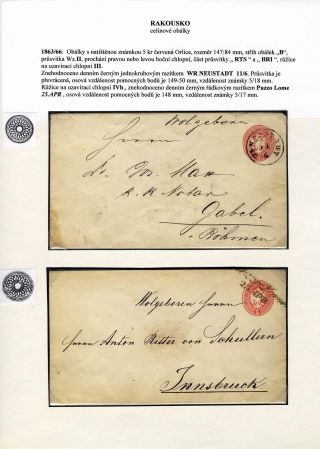 RAKOUSKO
celinové obálky
1863/66: Obálky s natištěnou známkou 5 kr červená Orlice, rozměr 147:84 mm, střih obálek „B“,
průsvitka Wz.II, dochází pravou nebo levou boční chlopní, část průsvitky „ RTS “ a „ BRI “, růžice
na uzavírací chlopni III.
Znehodnoceno denním černým jednokruhovým razítkem WR NEUSTADT 11/6. Průsvitka je
převrácená, osová vzdálenost pomocných bodů je 149-50 mm, vzdálenost známky 5/18 mm.
Růžice na uzavírací chlopni IVb., znehodnoceno denním černým řádkovým razítkem Pozzo Lome
25.APR , osová vzdálenost pomocných bodů je 148 mm, vzdálenost známky 5/17 mm.
Wolgeborn
Herrn
Dr. Jos. Max
k. k. Notar
Gabel.
Böhmen
Wolgeboren Herrn
Herrn Anton Ritter von Schullern
Innsbruck